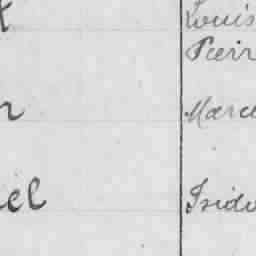 t Louis
Pierr
n Marce
el Isido